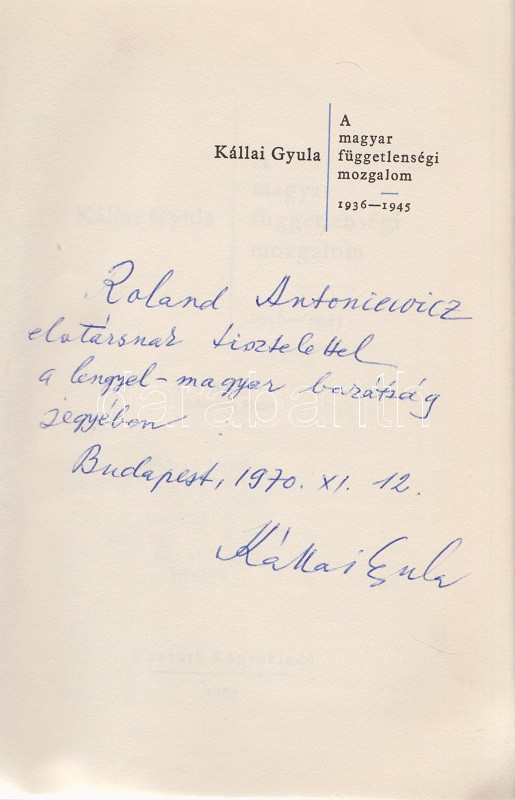 Kállai Gyula
A
magyar
függetlenségi
mozgalom
1936—1945
Roland Antoniewicz
elvtársnak tisztelettel
a lengyel-magyar barátság
jegyében
darabanth
Budapest, 1970. XI. 12.
Kállai Gyula